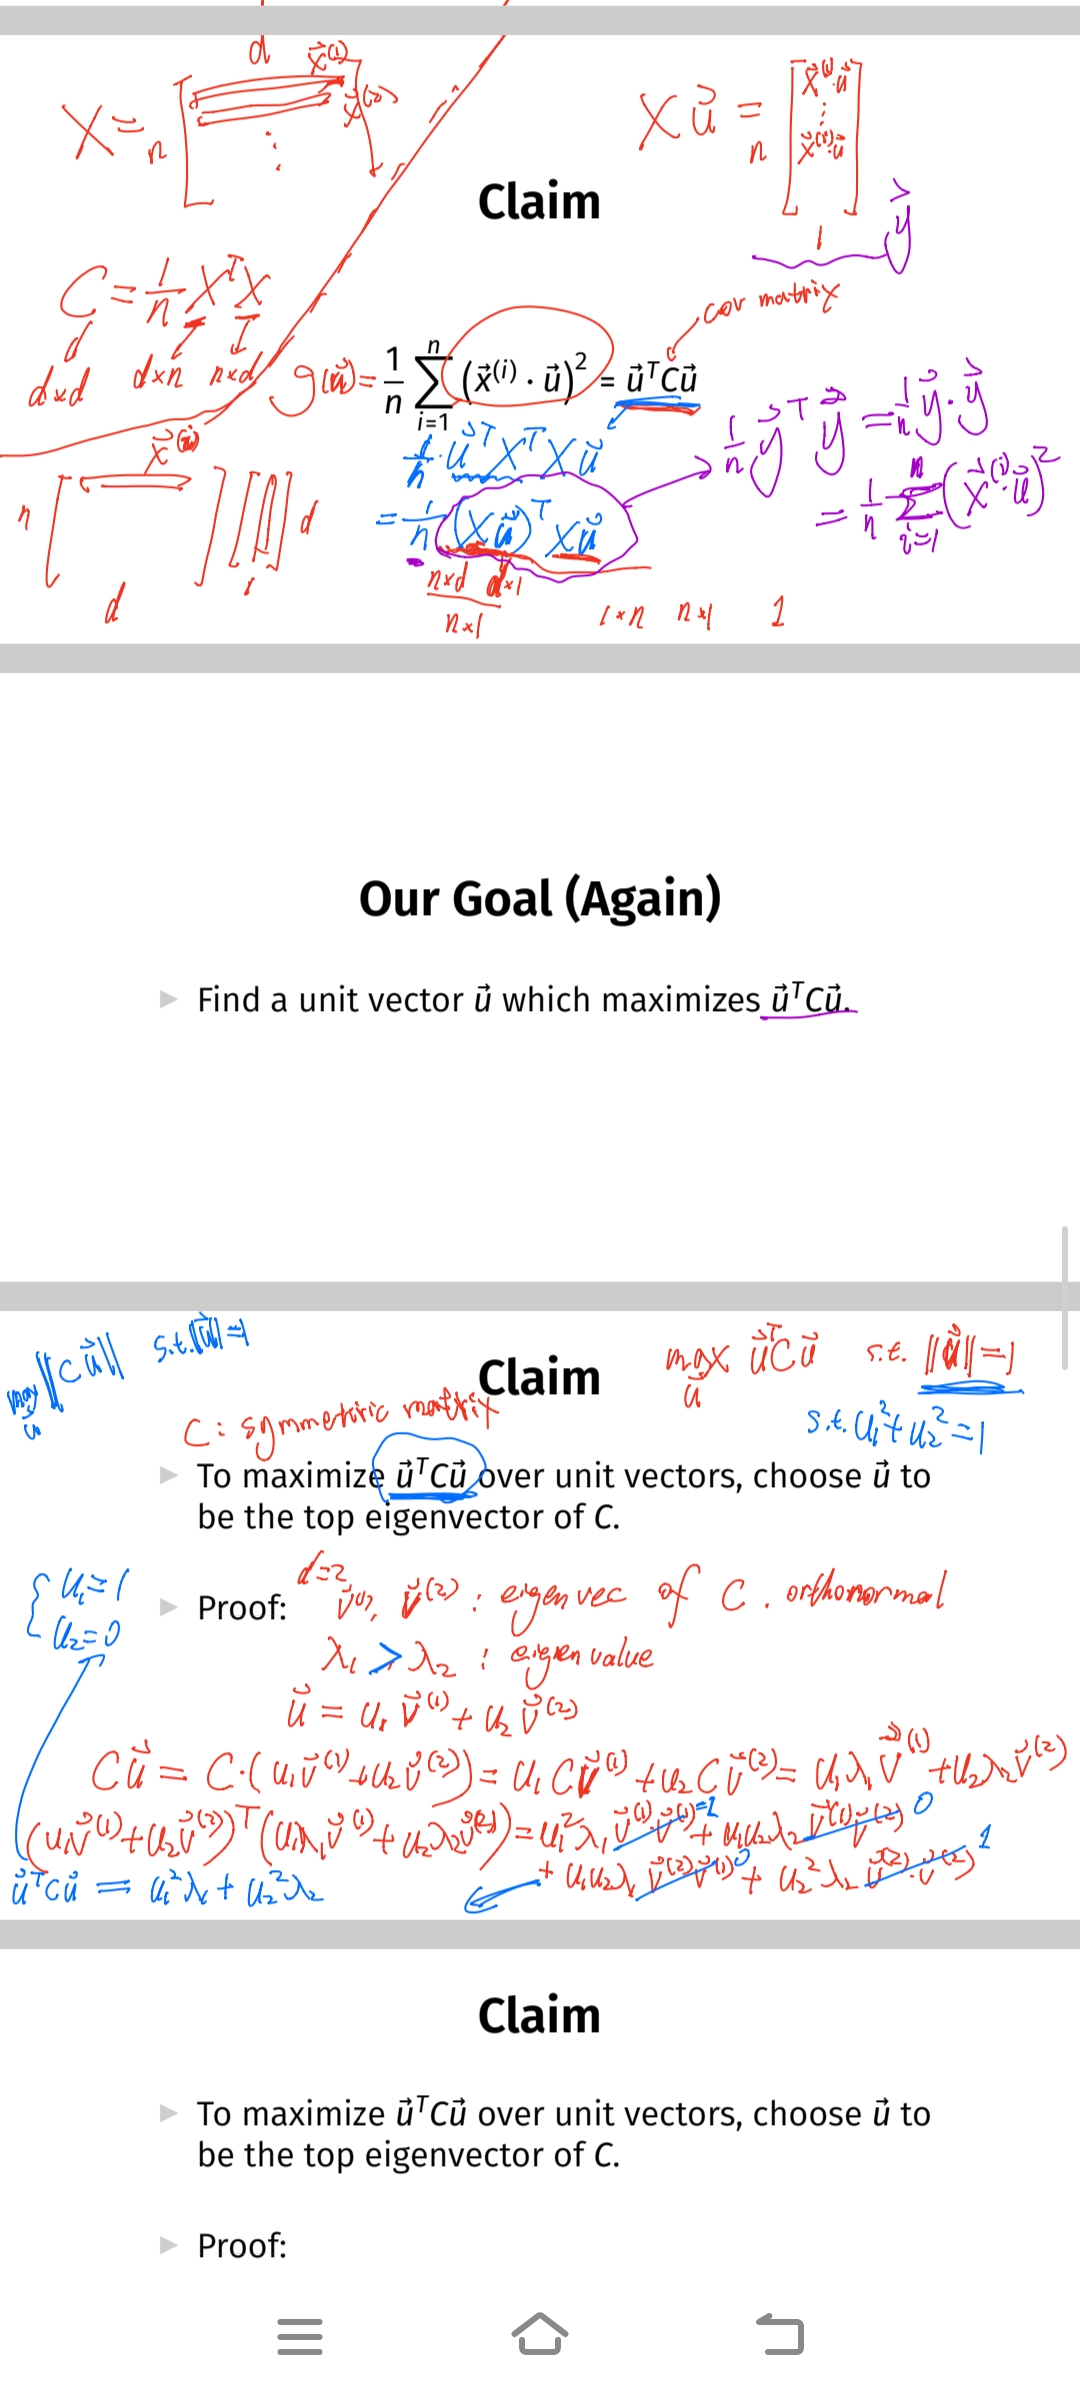 d x⃗⁽¹⁾
X = n [ x⃗⁽²⁾ ⋮
X u⃗ = n [ x⃗⁽¹⁾·u⃗ ⋮ x⃗⁽ⁱ⁾·u⃗ ]
1 y⃗
Claim
C = 1/n XᵀX
d×d d×n n×d
cov matrix
g(u⃗) = 1/n ∑ᵢ₌₁ⁿ (x⃗⁽ⁱ⁾ · u⃗)² = u⃗ᵀCu⃗
1/n · u⃗ᵀXᵀXu⃗
= 1/n (Xu⃗)ᵀ Xu⃗
1/n y⃗ᵀ y⃗ = 1/n y⃗·y⃗
= 1/n ∑ᵢ₌₁ⁿ (x⃗⁽ⁱ⁾·u⃗)²
x⃗⁽ⁱ⁾
n [ ] [ ] d
d 1
n×d d×1
n×1
1×n n×1 1
Our Goal (Again)
Find a unit vector u⃗ which maximizes u⃗ᵀCu⃗.
max u⃗ ||Cu⃗|| s.t. ||u⃗||=1
Claim
max u⃗ u⃗ᵀCu⃗ s.t. ||u⃗||=1
s.t. u₁²+u₂²=1
C: symmetric matrix
To maximize u⃗ᵀCu⃗ over unit vectors, choose u⃗ to
be the top eigenvector of C.
{ u₁=1
u₂=0
Proof:
d=2
v⃗⁽¹⁾, v⃗⁽²⁾ : eigenvec of C. orthonormal
λ₁ > λ₂ : eigenvalue
u⃗ = u₁v⃗⁽¹⁾ + u₂v⃗⁽²⁾
Cu⃗ = C·(u₁v⃗⁽¹⁾+u₂v⃗⁽²⁾) = u₁Cv⃗⁽¹⁾ + u₂Cv⃗⁽²⁾ = u₁λ₁v⃗⁽¹⁾ + u₂λ₂v⃗⁽²⁾
(u₁v⃗⁽¹⁾+u₂v⃗⁽²⁾)ᵀ(u₁λ₁v⃗⁽¹⁾+u₂λ₂v⃗⁽²⁾) = u₁²λ₁v⃗⁽¹⁾·v⃗⁽¹⁾=1 + u₁u₂λ₂v⃗⁽¹⁾·v⃗⁽²⁾ 0
+ u₁u₂λ₁v⃗⁽²⁾·v⃗⁽¹⁾ 0 + u₂²λ₂v⃗⁽²⁾·v⃗⁽²⁾ 1
u⃗ᵀCu⃗ = u₁²λ₁ + u₂²λ₂
Claim
To maximize u⃗ᵀCu⃗ over unit vectors, choose u⃗ to
be the top eigenvector of C.
Proof: